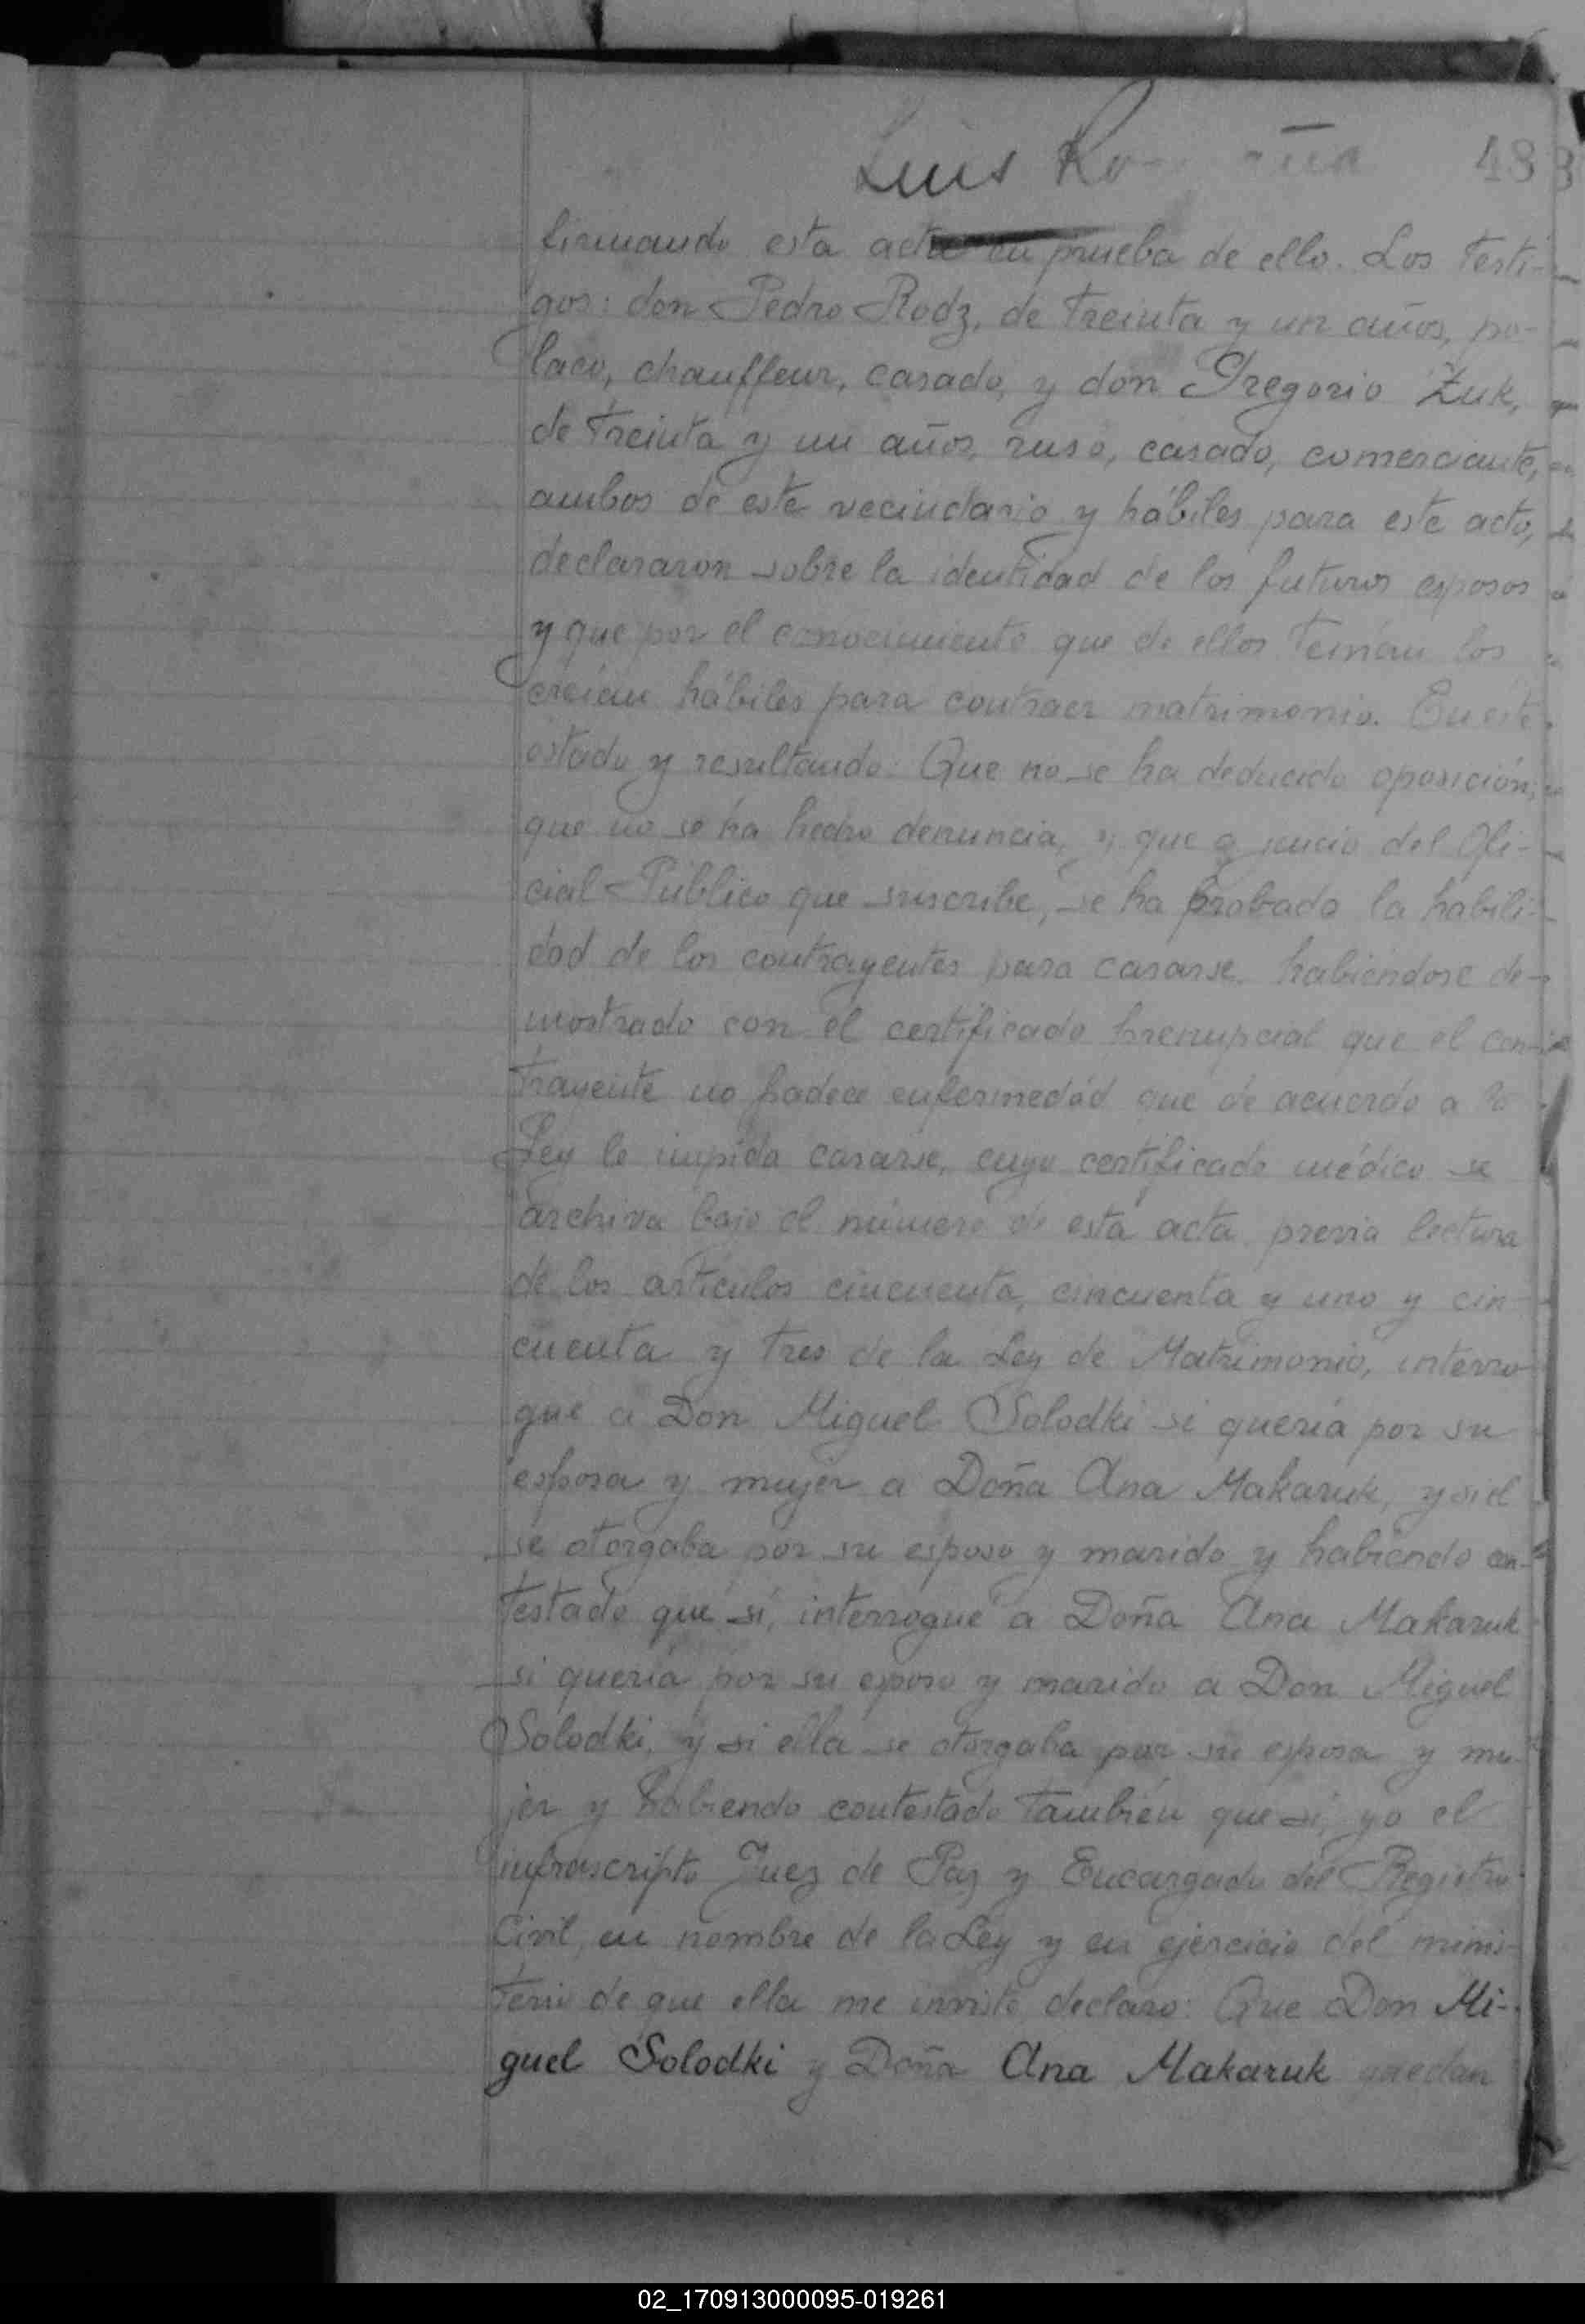 Luis
48
firmando esta acta en prueba de ello. Los testi-
gos: don Pedro Rodz, de treinta y un años, po-
laco, chauffeur, casado, y don Gregorio Zuk,
de treinta y un años, ruso, casado, comerciante,
ambos de este vecindario y hábiles para este acto,
declararon sobre la identidad de los futuros esposos
y que por el conocimiento que de ellos tenían los
creían hábiles para contraer matrimonio. En este
estado y resultando: Que no se ha deducido oposición,
que no se ha hecho denuncia, y que a juicio del Ofi-
cial Público que suscribe, se ha probado la habili-
dad de los contrayentes para casarse. habiéndose de-
mostrado con el certificado prenupcial que el con-
trayente no padece enfermedad que de acuerdo a la
Ley le impida casarse, cuyo certificado médico se
archiva bajo el número de esta acta, previa lectura
de los artículos cincuenta, cincuenta y uno y cin-
cuenta y tres de la Ley de Matrimonio, interro-
gué a Don Miguel Solodki si quería por su
esposa y mujer a Doña Ana Makaruk, y si él
se otorgaba por su esposo y marido y habiendo con-
testado que sí, interrogué a Doña Ana Makaruk
si quería por su esposo y marido a Don Miguel
Solodki, y si ella se otorgaba por su esposa y mu-
jer y habiendo contestado también que sí, yo el
infrascripto Juez de Paz y Encargado del Registro
Civil, en nombre de la Ley y en ejercicio del minis-
terio de que ella me inviste declaro: Que Don Mi-
guel Solodki y Doña Ana Makaruk quedan
02_170913000095-019261